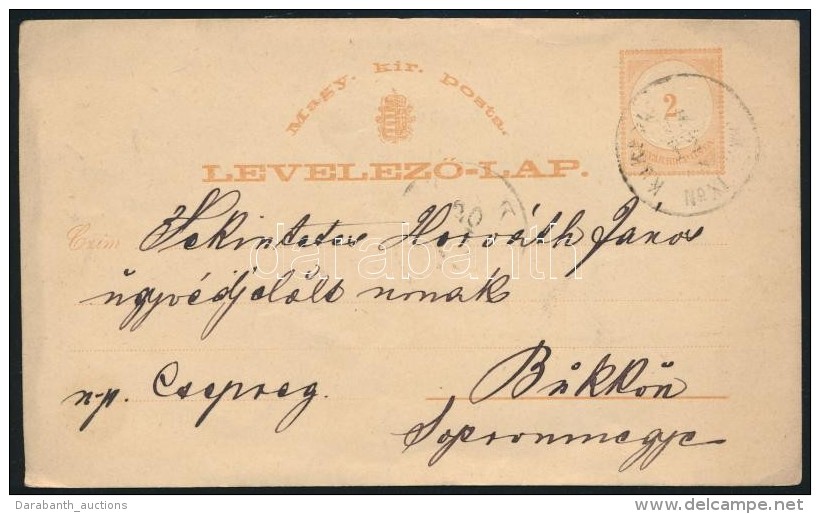 Magy. kir. posta.
2
LEVELEZŐ-LAP.
Czim Tekintetes Horváth Janos
ügyvédjelölt urnak
u.p. Csepreg.
Bükkön
Sopronmegye
darabanth
Darabanth_auctions
delcampe.net